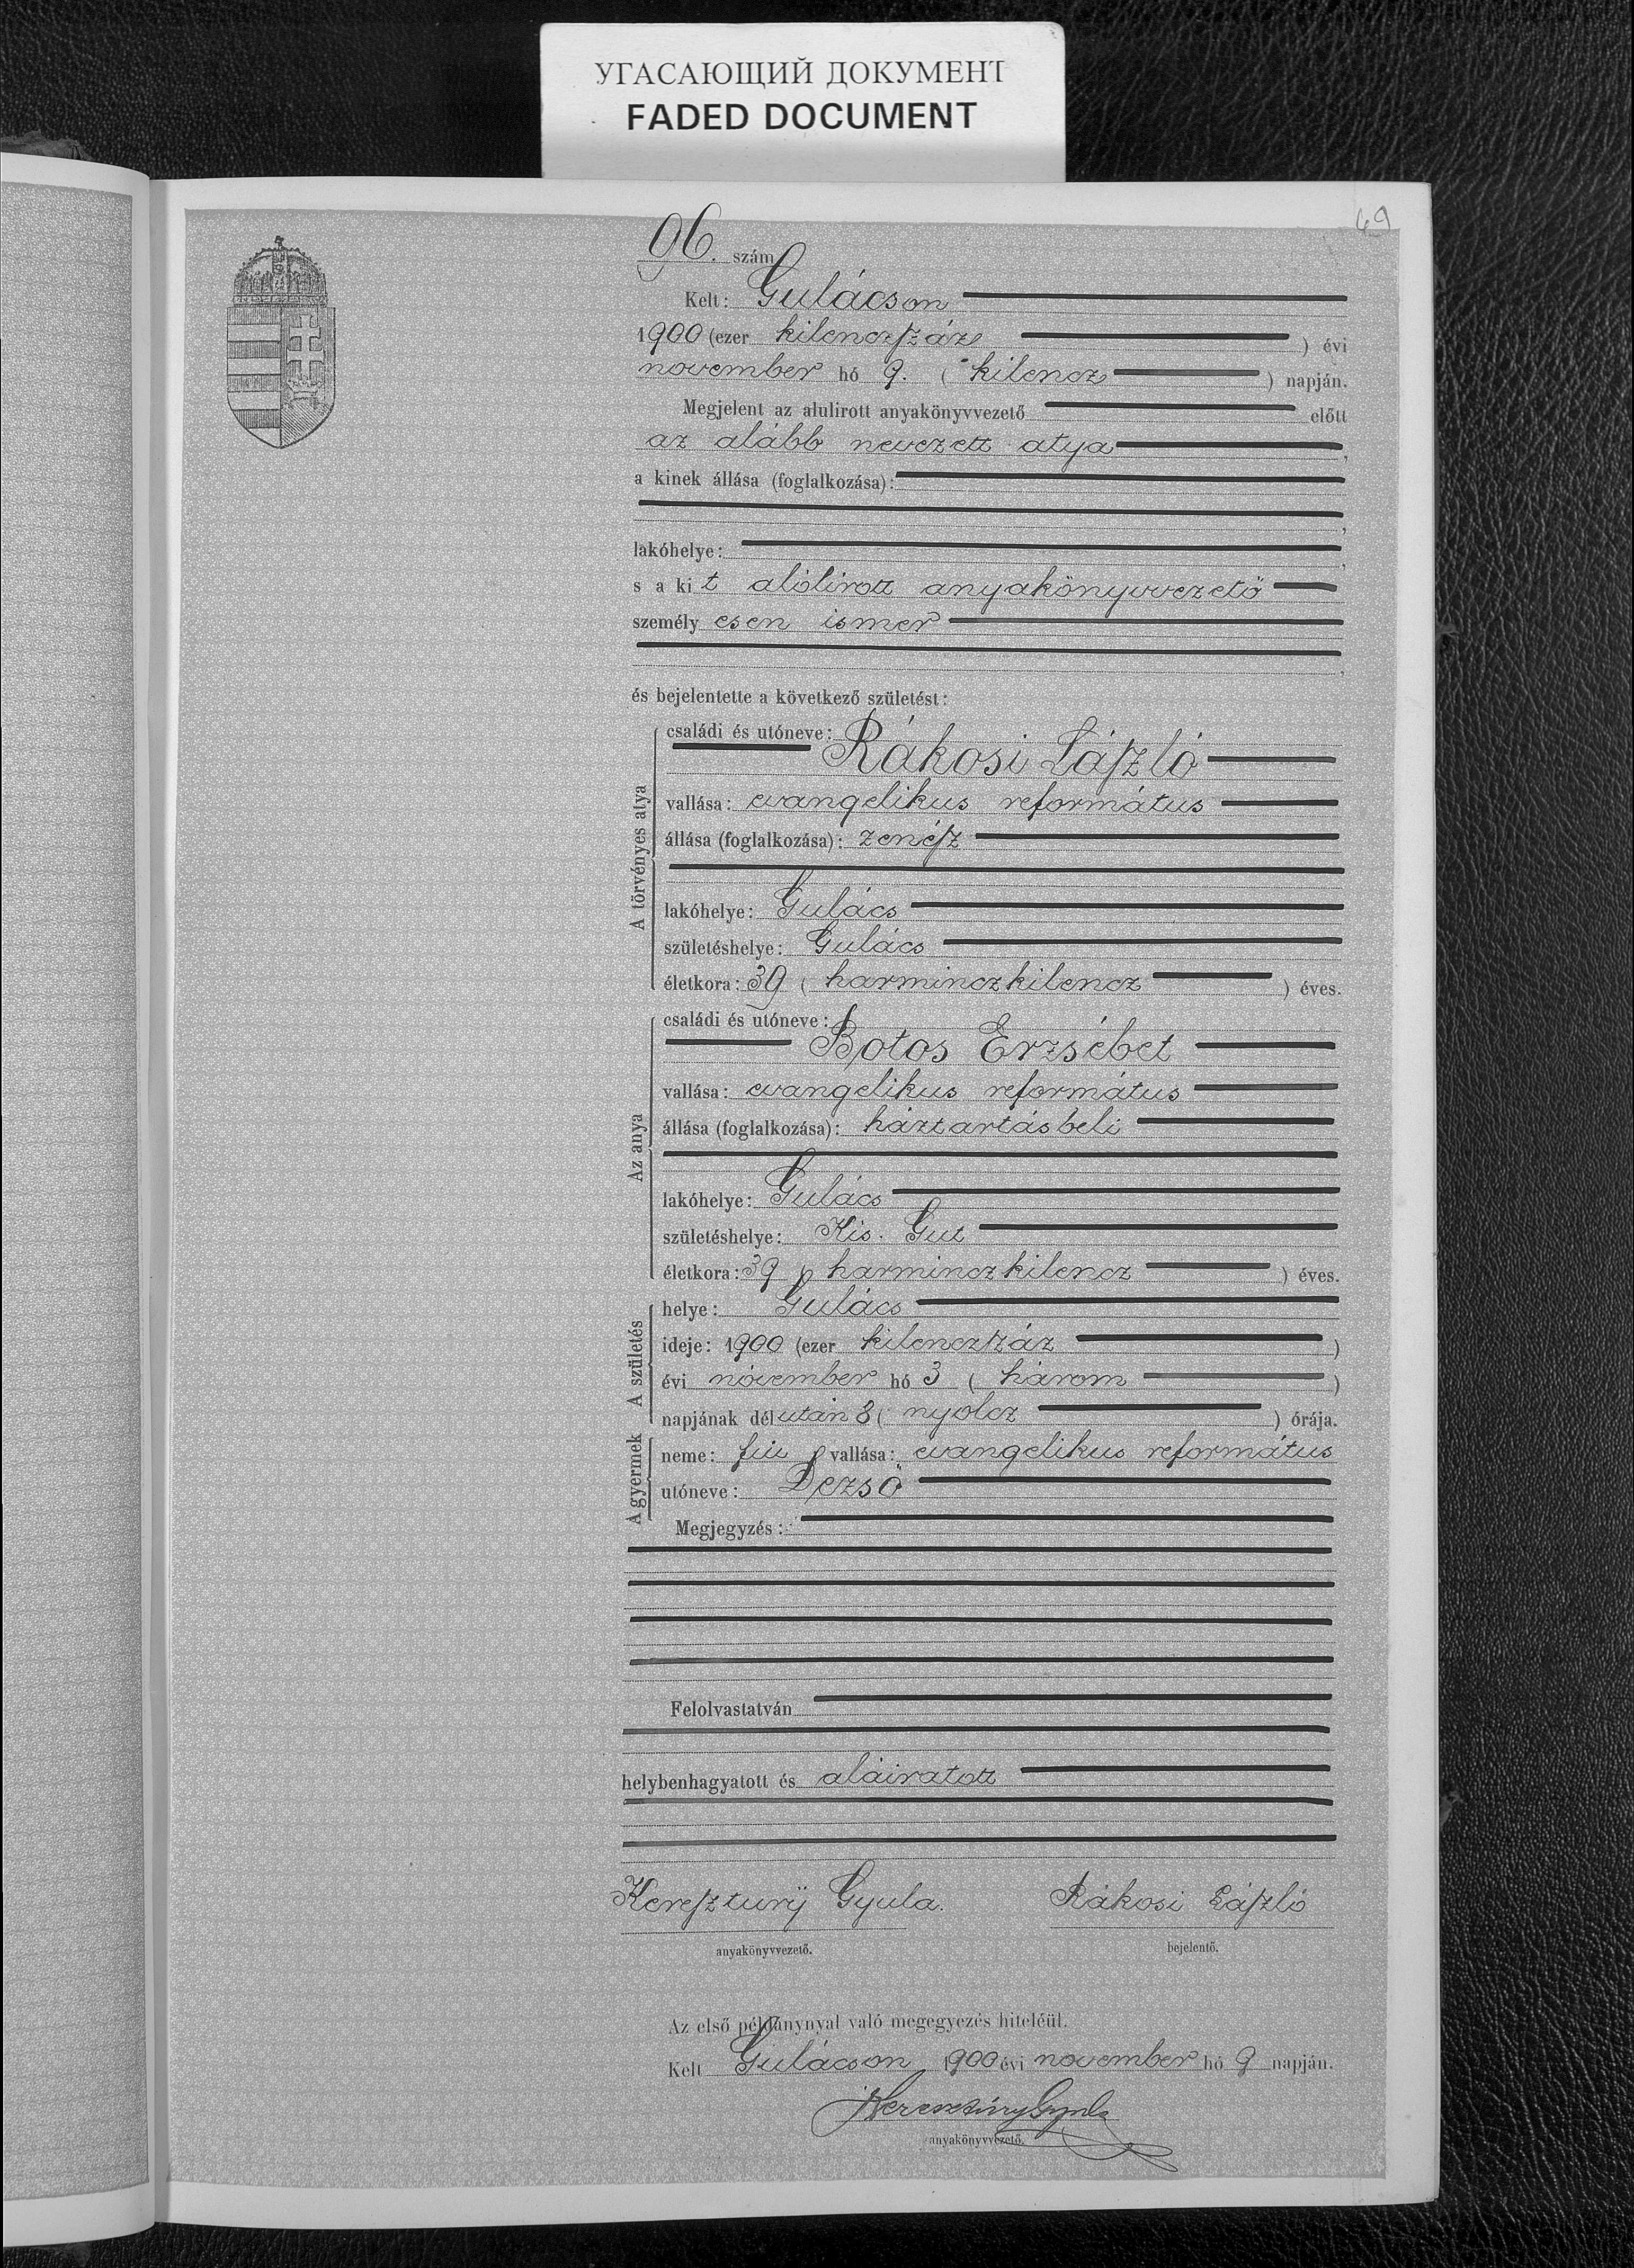 УГАСАЮЩИЙ ДОКУМЕНТ
FADED DOCUMENT
49
96. szám
Kelt: Gulácson
1900 (ezer kilenczszáz ) évi
november hó 9. ( kilencz ) napján.
Megjelent az alulirott anyakönyvvezető előtt
az alább nevezett atya,
a kinek állása (foglalkozása):
lakóhelye:
s a kit alólirott anyakönyvvezető
személyesen ismer
és bejelentette a következő születést:
A törvényes atya
családi és utóneve:
Rákosi László
vallása: evangelikus református
állása (foglalkozása): zenész
lakóhelye: Gulács
születéshelye: Gulács
életkora: 39 ( harminczkilencz ) éves.
Az anya
családi és utóneve:
Botos Erzsébet
vallása: evangelikus református
állása (foglalkozása): háztartásbeli
lakóhelye: Gulács
születéshelye: Kis. Gut
életkora: 39 ( harminczkilencz ) éves.
A születés
helye: Gulács
ideje: 1900 (ezer kilenczszáz )
évi november hó 3 ( három )
napjának délután 8 ( nyolcz ) órája.
A gyermek
neme: fiú vallása: evangelikus református
utóneve: Dezső
Megjegyzés:
Felolvastatván
helybenhagyatott és aláiratott
Keresztury Gyula. Rákosi László
anyakönyvvezető. bejelentő.
Az első példánynyal való megegyezés hiteléül.
Kelt Gulácson, 1900 évi november hó 9 napján.
Keresztúry Gyula
anyakönyvvezető.